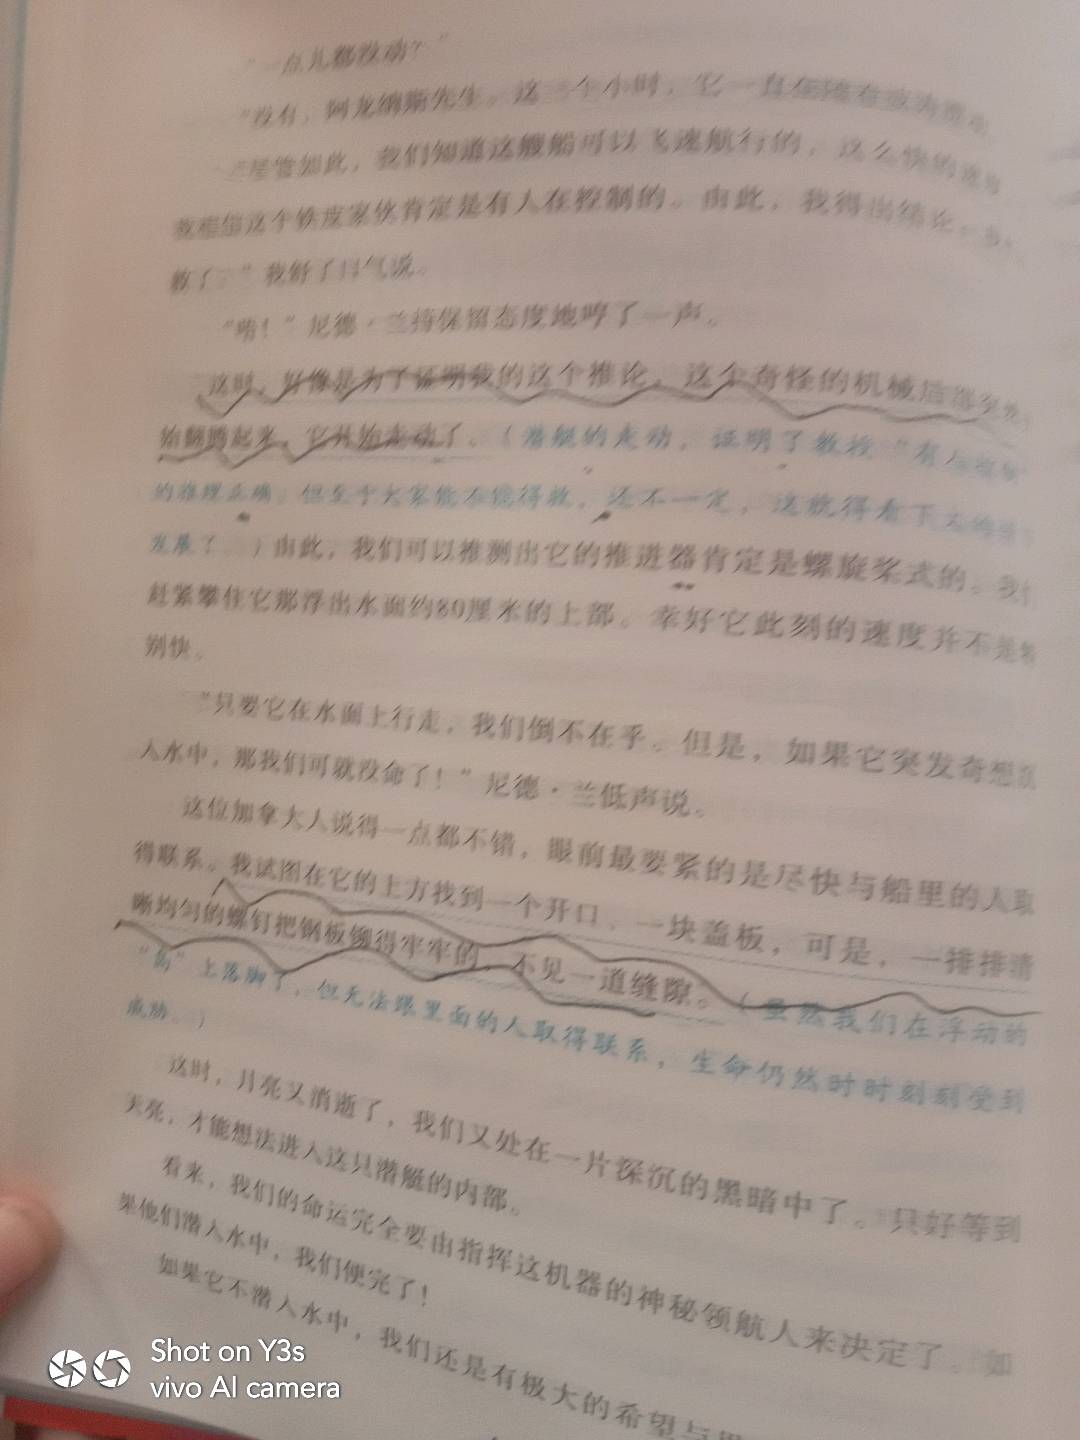 “一点儿都没动？”
“没有，阿龙纳斯先生。这三个小时，它一直在随着波涛
“尽管如此，我们知道这艘船可以飞速航行的，这么快的速度
这个铁皮家伙肯定是有人在控制的。由此，我得出结论：
救了。”我舒了口气说。
“唔！”尼德·兰持保留态度地哼了一声。
这时，好像是为了证明我的这个推论，这个奇怪的机械后部突然
始翻腾起来，它开始走动了。（潜艇的走动，证明了教授“有人
的推理正确。但至于大家能不能得救，还不一定，这就得看下文的
发展了。）由此，我们可以推测出它的推进器肯定是螺旋桨式的。我们
赶紧攀住它那浮出水面约80厘米的上部。幸好它此刻的速度并不是特
别快。
“只要它在水面上行走，我们倒不在乎。但是，如果它突发奇想沉
入水中，那我们可就没命了！”尼德·兰低声说。
这位加拿大人说得一点都不错，眼前最要紧的是尽快与船里的人取
得联系。我试图在它的上方找到一个开口、一块盖板，可是，一排排清
晰均匀的螺钉把钢板铆得牢牢的，不见一道缝隙。（虽然我们在浮动的
“岛”上落脚了，但无法跟里面的人取得联系，生命仍然时时刻刻受到
威胁。）
这时，月亮又消逝了，我们又处在一片深沉的黑暗中了。只好等到
天亮，才能想法进入这只潜艇的内部。
看来，我们的命运完全要由指挥这机器的神秘领航人来决定了。如
果他们潜入水中，我们便完了！
如果它不潜入水中，我们还是有极大的希望与
Shot on Y3s
vivo AI camera